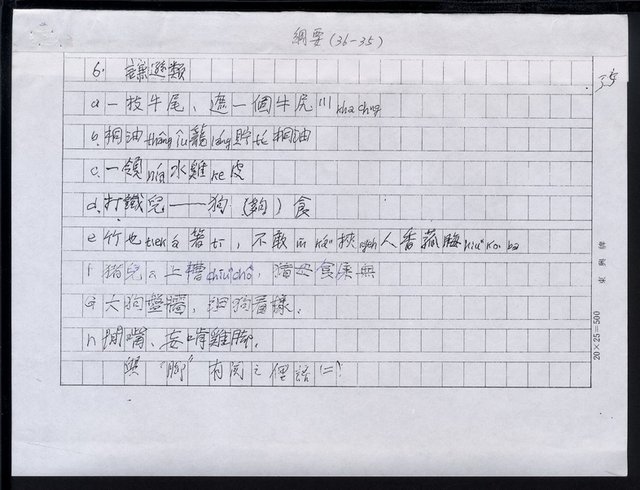 綱要(36-35)
35
6. 謙遜類
a 一枝牛尾、遮一個牛尻川 kha chng
b. 桐油 thâng iû 籠 láng 貯 té 桐油
c. 一領 niá 水雞 ke 皮
d. 打鐵兒——狗(鉤)食
e 竹也 tek á 箸 tī，不敢 m̄ káⁿ 挾 ngeh 人香菰 hiuⁿ ko͘ ba
f 豬兒 a 上槽 chiūⁿ chô，豬母食 無
G 大狗盤牆，細狗看樣。
h 開嘴、妄啃雞腳。
與“腳”有關之俚語(二)
20×25=500